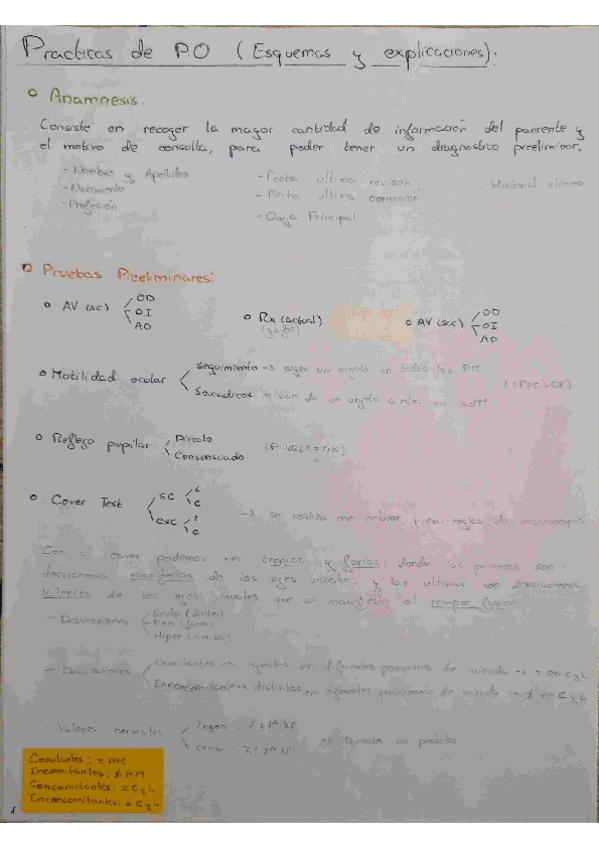 Practicas de P.O (Esquemas y explicaciones):
Anamnesis:
Consiste en recoger la mayor cantidad de información del paciente y
el motivo de consulta, para poder tener un diagnostico preeliminar.
- Nombre y Apellidos - Fecha ultima revisión - Historial clinico
- Nacimiento - Fecha ultima corrección
- Profesión - Queja Principal
Pruebas Preeliminares:
AV (sc) OD OI AO
Rx (actual) (gafas)
AV (scc) OD OI AO
Motilidad ocular
Seguimiento → siguen un objeto en todas las PM
Sacadicos
Reflejo pupilar Directo Consensuado
Cover Test sc L C
csc L C
→ Se realiza con oclusor y con reglas de
Con el cover podemos ver tropias y forias: donde las primeras son
desviaciones manifiestas de los ejes visuales y las ultimas son desviaciones
latentes de los ejes visuales que se manifiesta al romper fusión
- Desviaciones Endo (dentro)
Exo (fuera)
Hiper (arriba)
- Desviaciones Comitantes → iguales en diferentes posiciones de mirada → = en C y L
Inconcomitantes → distintas en diferentes posiciones de mirada → ≠ en C y L
- Valores normales Lejos:
Cerca:
Comitantes: = PM
Incomitantes: ≠ P.M
Concomitantes: = C y L
Inconcomitantes: ≠ C y L
1